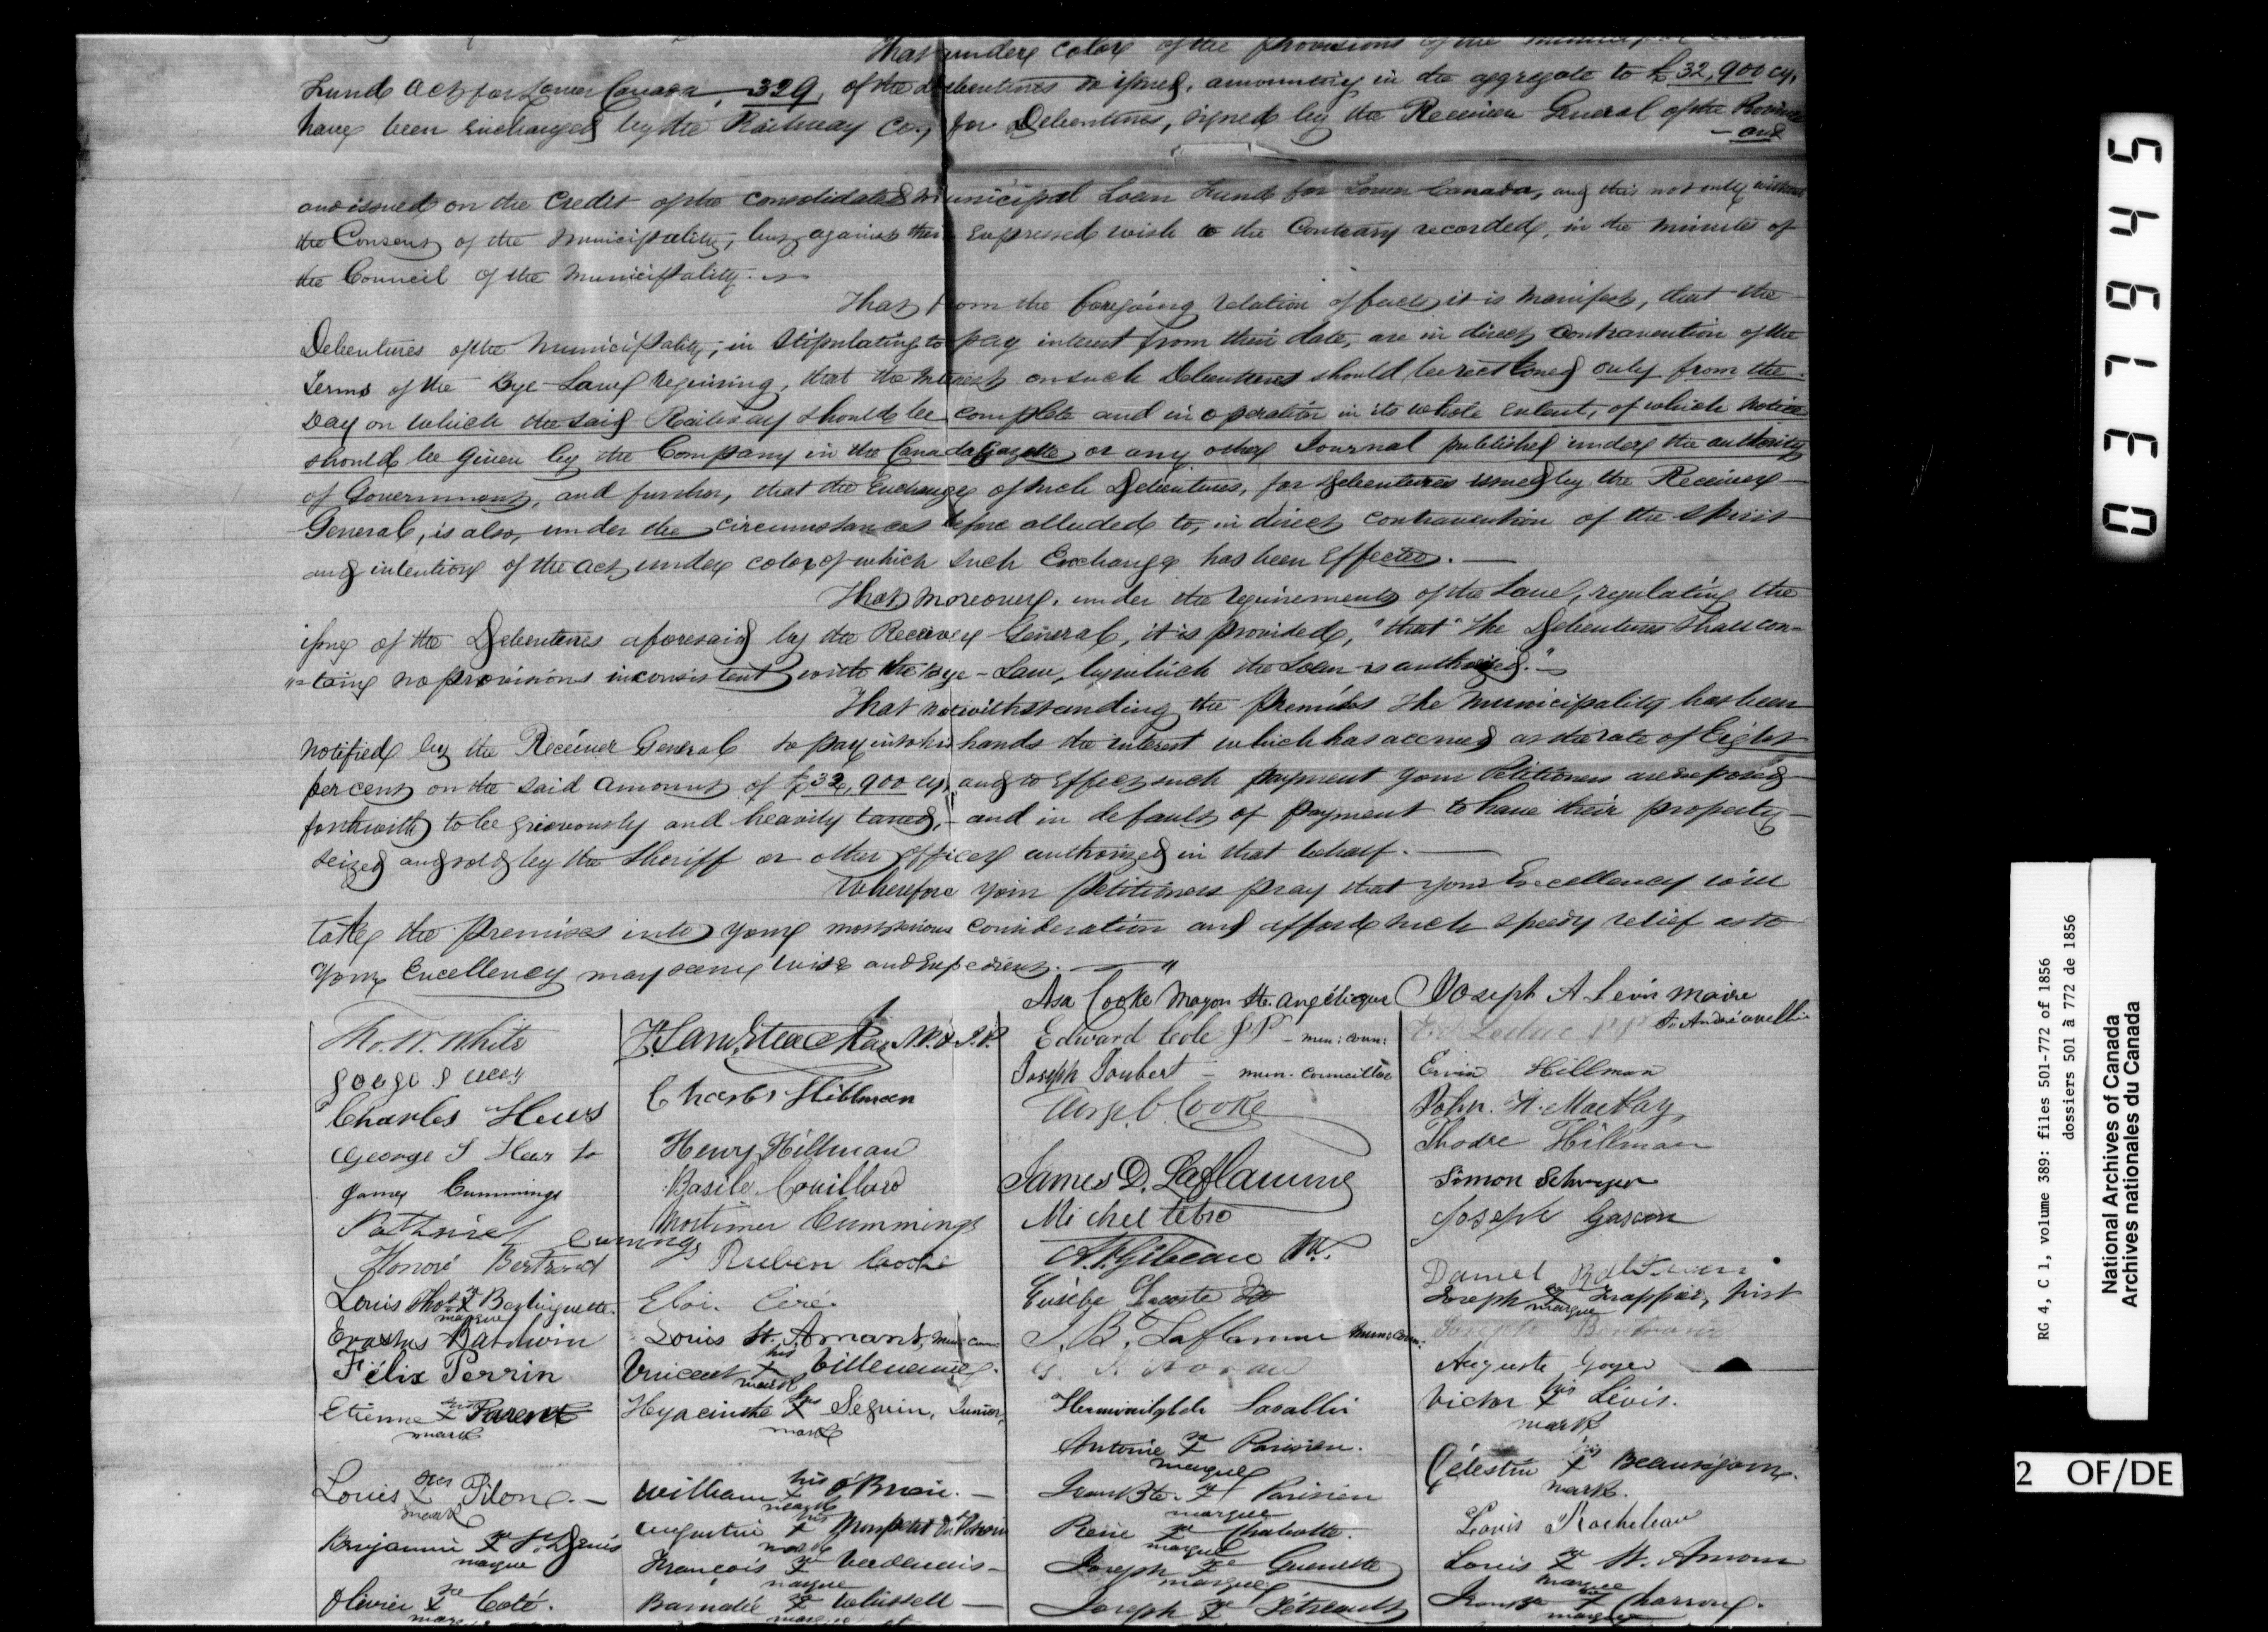 That under color of the provisions of the Municipal Loan
Fund Act for Lower Canada, 329, of the debentures so issued, amounting in the aggregate to £32,900 cy,
have been exchanged by the Railway Co., for Debentures, signed by the Receiver General of the Province
- and
and issued on the Credit of the Consolidated Municipal Loan Fund for Lower Canada, and this not only without
the Consent of the Municipality, but against their expressed wish to the Contrary recorded, in the minutes of
the Council of the Municipality.
That from the foregoing relation of facts it is manifest, that the
Debentures of the Municipality, in stipulating to pay interest from their date, are in direct contravention of the
Terms of the Bye-Law requiring, that the Interest on such Debentures should be reckoned only from the
Day on which the said Railway should be complete and in operation in its whole extent, of which notice
should be given by the Company in the Canada Gazette or any other Journal published under the authority
of Government, and further, that the Exchange of such Debentures, for Debentures issued by the Receiver
General, is also, under the circumstances before alluded to, in direct contravention of the spirit
and intention of the act under color of which such Exchange has been Effected.
That moreover, under the requirements of the Law, regulating the
issue of the Debentures aforesaid by the Receiver General, it is provided, "that" the Debentures shall con-
"-tain no provisions inconsistent with the Bye-Law, by which the Loan is authorized."
That notwithstanding the premises the Municipality has been
notified by the Receiver General to pay into his hands the interest which has accrued at the rate of Eight
per cent on the said amount of £32,900 cy, and to effect such payment your Petitioners are exposed
forthwith to be grievously and heavily taxed, - and in default of payment to have their property
seized and sold by the Sheriff or other officer authorized in that behalf.
Wherefore your Petitioners pray that your Excellency will
take the premises into your most serious consideration and afford such speedy relief as to
Your Excellency may seem wise and Expedient.
Tho. W. White
Charles Hews
George S
James Cummings
Nathaniel Cummings
Honoré Bertrand
Louis Thos. sa X marque Berlinguette.
Erastus Baldwin
Félix Perrin
Etienne his X mark Parent
Louis his X mark Pilon.
Benjamin sa X marque St. Denis
Olivier sa X marque Coté.
Charles Hillman
Henry Hillman
Basile Couillard
Mortimer Cummings
Ruben Cooke
Eloi Céré
Louis St. Amant, Mun: Coun:
Vincent his X mark Villeneuve.
Hyacinthe his X mark Séguin, Junior,
William his X mark O'Brien.
Augustin his X mark Monpetit
François sa X marque Verdenais
Barnabé sa X marque
Asa Cooke Mayor Ste. Angélique
Edward Cole JP - mun: coun:
Joseph Joubert - mun. councillor
Cooke
James D. Laflamme
Michel tetro
A. Gibeau
Eusèbe Lacoste
J. B. Laflamme Mun: Coun.
Antoine sa X marque Parisien.
Jean Bte. sa X marque Parisien
Pierre sa X marque Chabotte.
Joseph sa X marque Guenette
Joseph sa X Tétreault
Joseph A Levis maire
St. André avellin
E. Leduc
Ervin Hillman
John. H. MacKay,
Thodre Hillman
Simon Schryer
Joseph Gascon
Daniel Baldwin
Joseph sa X marque Frappier, first
Joseph Bertrand
Auguste Goyer
Victor his X mark Lévis.
Célestin his X mark Beauséjour.
Louis Rocheleau
Louis sa X marque St. Amour
sa X marque Charron.
0371945
RG 4, C 1, volume 389: files 501-772 of 1856
dossiers 501 à 772 de 1856
National Archives of Canada
Archives nationales du Canada
2 OF/DE